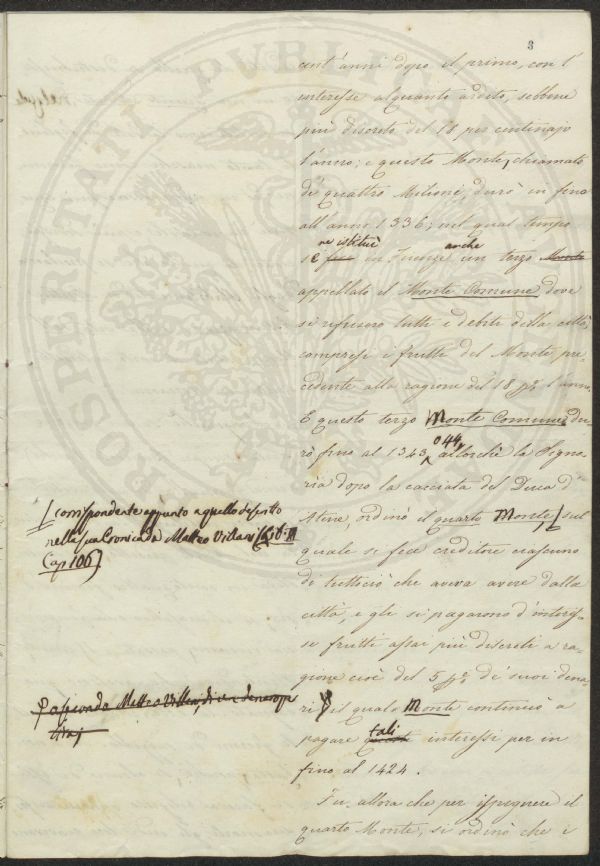 3
cent'anni dopo il primo, con l'
interesse alquanto ardito, sebbene
più discreto del 18 per centinajo
l'anno; e questo Monte, chiamato
di quattro Milioni, durò in fino
all'anno 1336; nel qual tempo
ne istituì anche
se in Firenze un terzo Monte
appellato il Monte Comune dove
si rifusero tutti i debiti della città
compresi i frutti del Monte pre-
cedente alla ragione del 18 p% l'anno.
E questo terzo Monte Comune du-
rò fino al 1343, o 44, allorchè la Signo-
ria dopo la cacciata del Duca d'
Atene, ordinò il quarto Monte, sul
quale si fece creditore ciascuno
di tutto ciò che aveva avere dalla
città, e gli si pagarono d'interes-
se frutti assai più discreti a ra-
gione cioè del 5 p% de' suoi dena-
ri il quale Monte continuò a
pagare tali interessi per in
fino al 1424.
Fu allora che per ispegnere il
quarto Monte, si ordinò che i
corrispondente appunto a quello descritto
nella sua Cronica da Matteo Villani (Lib. III
Cap 106)
secondo Matteo Villani, di
PROSPERITATI PUBLICAE